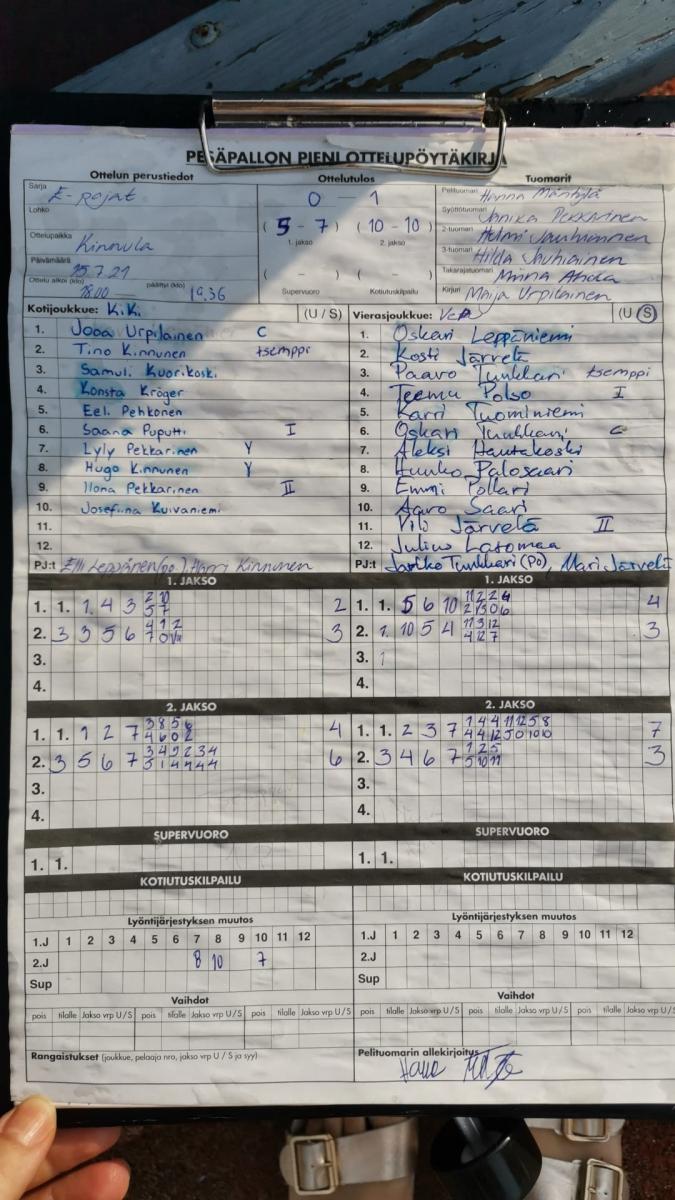 PESÄPALLON PIENI OTTELUPÖYTÄKIRJA
Ottelun perustiedot
Sarja E-pojat
Lohko
Ottelupaikka Kinnula
Päivämäärä 25.7.21
Ottelu alkoi (klo) 18.00 päättyi (klo) 19.36
Ottelutulos
0 - 1
( 5 - 7 ) ( 10 - 10 )
1. jakso 2. jakso
( - ) ( - )
Supervuoro Kotiutuskilpailu
Tuomarit
Pelituomari Hanna Mäntylä
Syöttötuomari Annika Pekkarinen
2-tuomari Helmi Jauhiainen
3-tuomari Hilda Jauhiainen
Takarajatuomari Minna Ahola
Kirjuri Maija Urpilainen
Kotijoukkue: K.K. (U / S)
1. Jooa Urpilainen C
2. Tino Kinnunen tsemppi
3. Samuli Kuorikoski
4. Konsta Kröger
5. Eeli Pehkonen
6. Saana Puputti I
7. Lyly Pekkarinen Y
8. Hugo Kinnunen Y
9. Ilona Pekkarinen II
10. Josefiina Kuivaniemi
11.
12.
PJ:t Elli Leppänen (po.), Harri Kinnunen
Vierasjoukkue: VetPV (U / S)
1. Oskari Leppäniemi
2. Kosti Järvelä
3. Paavo Tunkkari tsemppi
4. Teemu Polso I
5. Karri Tuominiemi
6. Oskari Tunkkari C
7. Aleksi Hautakoski
8. Huuko Palosaari
9. Emmi Pollari
10. Aaro Saari
11. Vilo Järvelä II
12. Julius Latomaa
PJ:t Jarkko Tunkkari (Po), Mari Järvelä
1. JAKSO
1. 1. 1 4 3 2 10 2
5 7
2. 3 3 5 6 4 1 2 3
7 0
3.
4.
1. JAKSO
1. 1. 5 6 10 11 2 2 4 4
2 1 3 0 6
2. 1. 10 5 4 11 3 12 3
4 12 7
3. 1
4.
2. JAKSO
1. 1. 1 2 7 3 8 5 6 4
4 6 0 2
2. 3 5 6 7 3 4 9 2 3 4 6
5 1 4 4 4 4
3.
4.
2. JAKSO
1. 1. 2 3 7 1 4 4 11 12 5 8 7
4 4 12 5 0 10 10
2. 3 4 6 7 1 2 5 3
5 10 11
3.
4.
SUPERVUORO
1. 1.
SUPERVUORO
1. 1.
KOTIUTUSKILPAILU
KOTIUTUSKILPAILU
Lyöntijärjestyksen muutos
1.J 1 2 3 4 5 6 7 8 9 10 11 12
2.J 8 10 7
Sup
Lyöntijärjestyksen muutos
1.J 1 2 3 4 5 6 7 8 9 10 11 12
2.J
Sup
Vaihdot
pois tilalle Jakso vrp U / S pois tilalle Jakso vrp U / S pois tilalle Jakso vrp U / S
Vaihdot
pois tilalle Jakso vrp U / S pois tilalle Jakso vrp U / S pois tilalle Jakso vrp U / S
Rangaistukset (joukkue, pelaaja nro, jakso vrp U / S ja syy)
Pelituomarin allekirjoitus